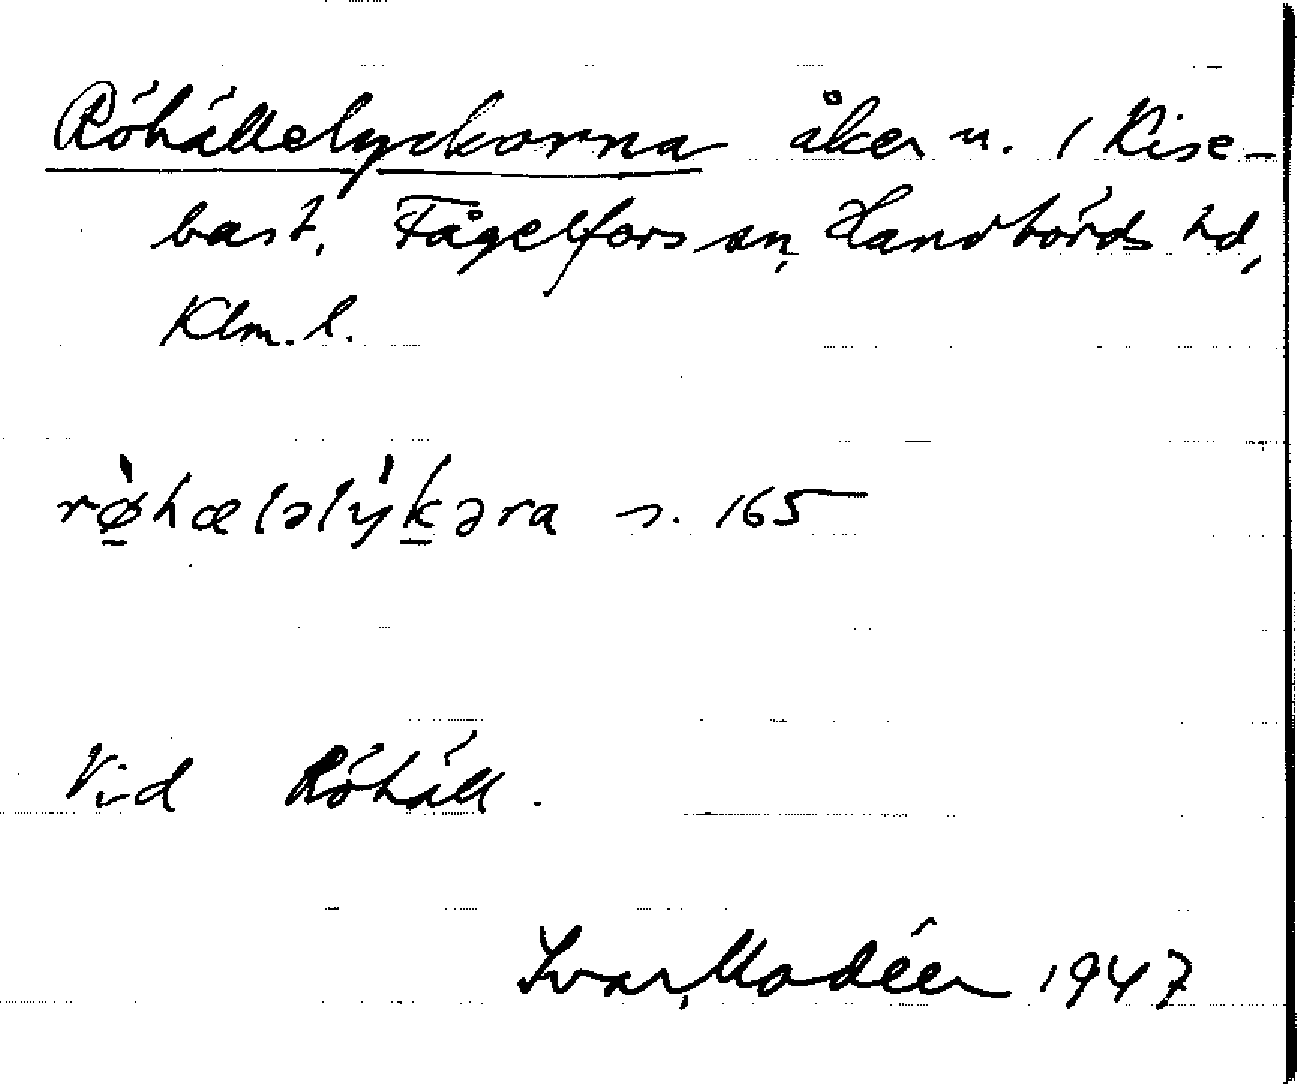 Röhällelyckorna åker u. / Kise-
bast, Fågelfors sn, Handbörds hd,
Klm. l.
rø̀hæləlỳkəra s. 165
Vid Röhäll.
Ivar Modéer 1947